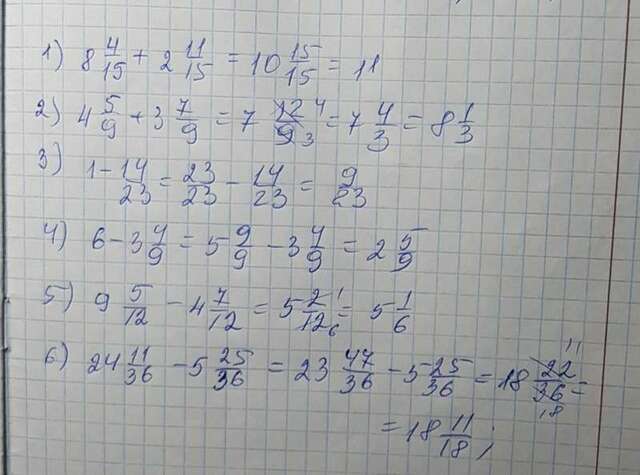 1) 8 4/15 + 2 11/15 = 10 15/15 = 11
2) 4 5/9 + 3 7/9 = 7 12/9 4/3 = 7 4/3 = 8 1/3
3) 1 - 14/23 = 23/23 - 14/23 = 9/23
4) 6 - 3 4/9 = 5 9/9 - 3 4/9 = 2 5/9
5) 9 5/12 - 4 7/12 = 5 2/12 1/6 = 5 1/6
6) 24 11/36 - 5 25/36 = 23 47/36 - 5 25/36 = 18 22/36 11/18 =
= 18 11/18 ;